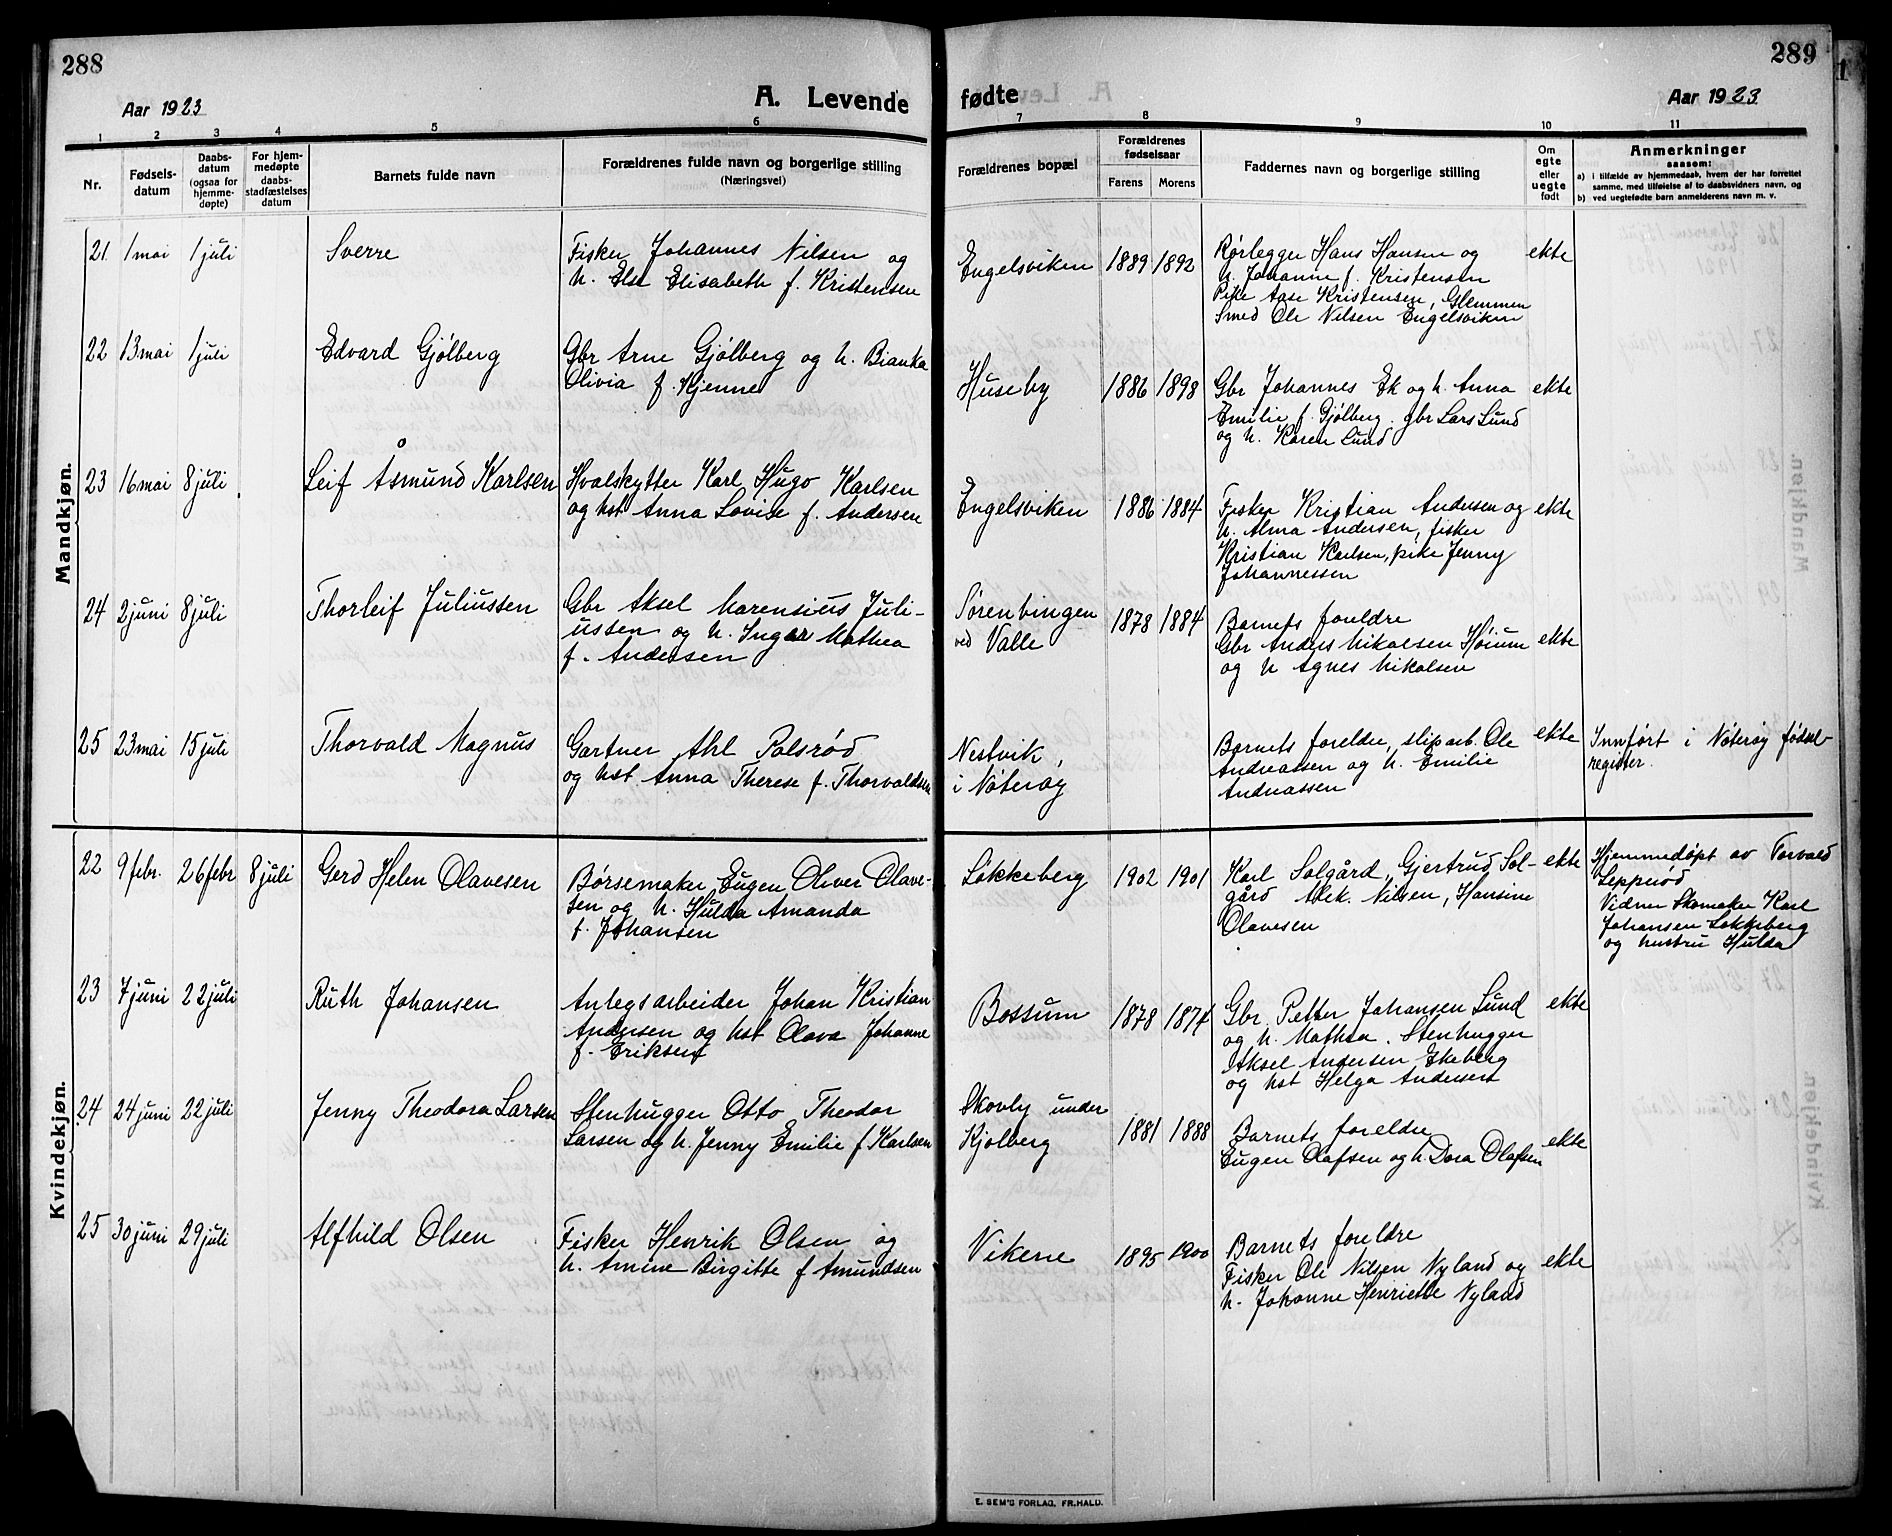 288
289
Aar 1923
A. Levende
fødte
Aar 1923
1 2 3 4 5 6
7 8 9 10 11
Nr.
Fødsels-
datum
Daabs-
datum
(ogsaa for
hjemme-
døpte)
For hjem-
medøpte
daabs-
stadfæstelses
datum
Barnets fulde navn
Forældrenes fulde navn og borgerlige stilling
(Næringsvei)
Forældrenes bopæl
Forældrenes
fødselsaar
Farens Morens
Faddernes navn og borgerlige stilling
Om
egte
eller
uegte
født
Anmerkninger
saasom:
a) i tilfælde av hjemmedaab, hvem der har forrettet
samme, med tilføielse af to daabsvidners navn, og
b) ved uegtefødte barn anmelderens navn m. v.
Mandkjøn.
21. 1 mai 1 juli Sverre
Fisker Johannes Nilsen og
h. Else Elisabeth f. Kristensen
Engelsviken 1889 1892
Rørlegger Hans Hansen og
h. Johanne f. Kristensen
Pike Aase Kristensen, Glemmen
Smed Ole Nilsen Engelsviken
ekte
22 13 mai 1 juli Edvard Gjølberg
Gbr Arne Gjølberg og h. Bianka
Olivia f. Kjenne
Huseby 1886 1898
Gbr Johannes Ek og h. Anna
Emilie f. Gjølberg. gbr Lars Lund
og h. Karen Lund
ekte
23 16 mai 8 juli Leif Åsmund Karlsen
Hvalskytter Karl Hugo Karlsen
og hst Anna Lovise f. Andersen
Engelsviken 1886 1884
Fisker Kristian Andersen og
h. Alma Andersen, fisker
Kristian Karlsen, pike Jenny
Johannessen
ekte
24 2 juni 8 juli Thorleif Juliussen
Gbr Aksel Marensius Juli-
ussen og h. Ingar Mathea
f. Andersen
Sørenbingen
ved Valle
1878 1884
Barnets foreldre
Gbr Anders Nikolsen Høium
og h Agnes Nikolsen
ekte
25 23 mai 15 juli Thorvald Magnus
Gartner Ahl Palsrød
og hst Anna Therese f. Thorvaldsen
Nestvik,
i Nøterøy
Barnets foreldre, sliparb. Ole
Andreassen og h. Emilie
Andreassen
ekte
Innført i Nøterøy fødsel-
register.
Kvindekjøn.
22 9 febr. 26 febr 8 juli Gerd Helen Olavesen
Børsemaker Eugen Oliver Olave-
sen og h. Hulda Amanda
f. Johansen
Løkkeberg 1902 1901
Karl Solgård, Gjertrud Sol-
gård Alek. Nilsen, Hansine
Olavesen
ekte
Hjemmedøpt av Torvald
Lepperød
Vidner Skomaker Karl
Johansen Løkkeberg
og hustru Hulda
23 7 juni 22 juli Ruth Johansen
Anlegsarbeider Johan Kristian
Andersen og hst Olava Johanne
f. Eriksen
Bossum 1878 1874
Gbr. Petter Johansen Lund
og h. Mathea. Stenhugger
Aksel Andersen Ekeberg
og hst Helga Andersen
ekte
24 24 juni 22 juli Jenny Theodora Larsen
Stenhugger Otto Theodor
Larsen og h. Jenny Emilie f Karlsen
Skovly under
Kjølberg
1881 1888
Barnets foreldre
Eugen Olafsen og h. Dora Olafsen
ekte
25 30 juni 29 juli Alfhild Olsen
Fisker Henrik Olsen og
h. Amine Birgitte f Amundsen
Vikene 1895 1900
Barnets foreldre
Fisker Ole Nilsen Nyland og
h. Johanne Henriette Nyland
ekte
E. SEM'S FORLAG, FR.HALD.